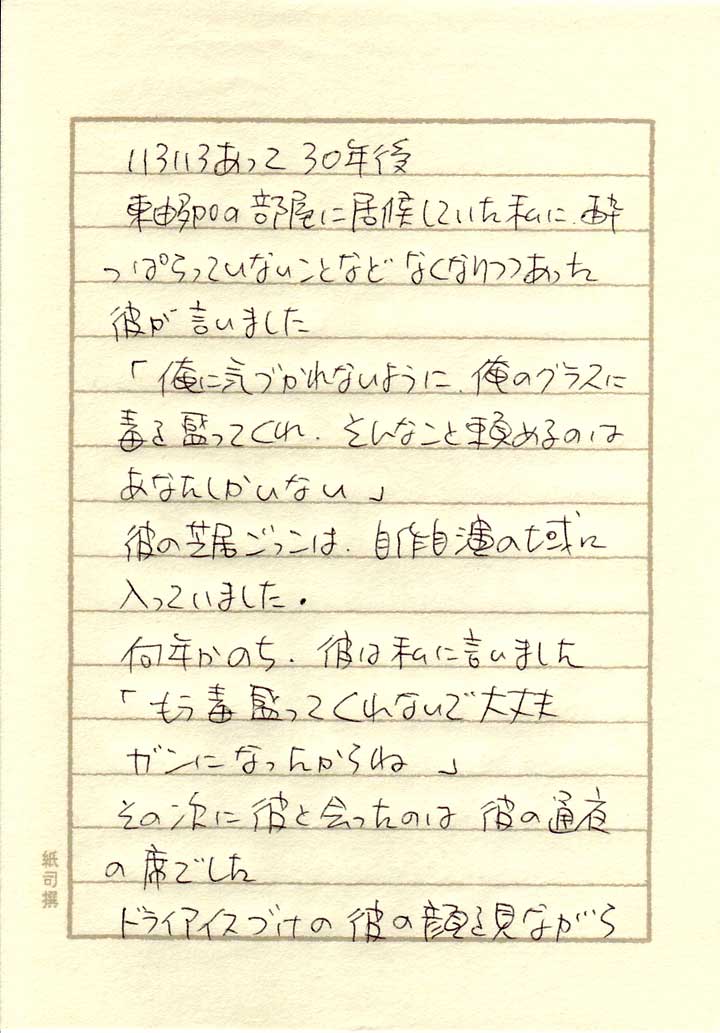 いろいろあって 30年後
東由多加の部屋に居候していた私に、酔
っぱらっていないことなど なくなりつつあった
彼が 言いました
「俺に気づかれないように、俺のグラスに
毒を盛ってくれ、そんなこと頼めるのは
あなたしかいない」
彼の芝居ごっこは、自作自演の域に
入っていました。
何年かのち、彼は私に言いました
「もう毒盛ってくれないで大丈夫
ガンになったからね 」
その次に彼と会ったのは 彼の通夜
の席でした
ドライアイスづけの彼の顔を見ながら
紙司撰